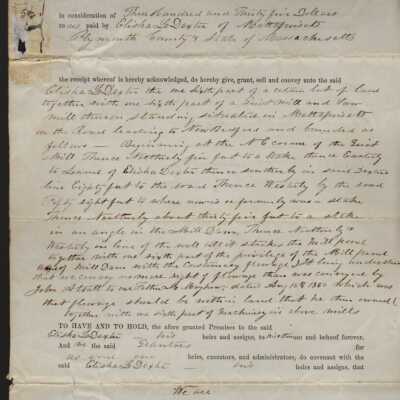 in consideration of Three Hundred and Thirty five Dollars
to us paid by Elisha L Dexter of Mattapoisett
Plymouth County & State of Massachusetts
the receipt whereof is hereby acknowledged, do hereby give, grant, sell and convey unto the said
Elisha L Dexter the one sixth part of a certain lot of land
together with one sixth part of a Grist Mill and Saw
mill thereon standing situated in Mattapoisett
on the Road leading to New Bedford and bounded as
follows — Beginning at the N E corner of the Grist
Mill Thence Northerly five feet to a stake thence Easterly
to Land of Elisha Dexter thence southerly in said Dexters
line Eighty feet to the road Thence Westerly by the road
Fifty eight feet to where now is or formerly was a stake
Thence Northerly about thirty five feet to a stake
in an angle in the Mill Dam, Thence Northerly &
Westerly in line of the wall till it strikes the Mill pond
together with one sixth part of the privilege of the Mill pond
and of Mill Dam with the Customary flowage, It being understood
that we convey no more right of flowage than was conveyed by
John Atsatt to our Father dated Aug 10th which was
that flowage should be within land that he then owned
together with one sixth part of Machinery in above mills
TO HAVE AND TO HOLD, the afore granted Premises to the said
Elisha L Dexter — his heirs and assigns, to his use and behoof forever.
And we the said Grantors for
ourselves our heirs, executors, and administrators, do covenant with the
said Elisha L Dexter — his heirs and assigns, that
We are